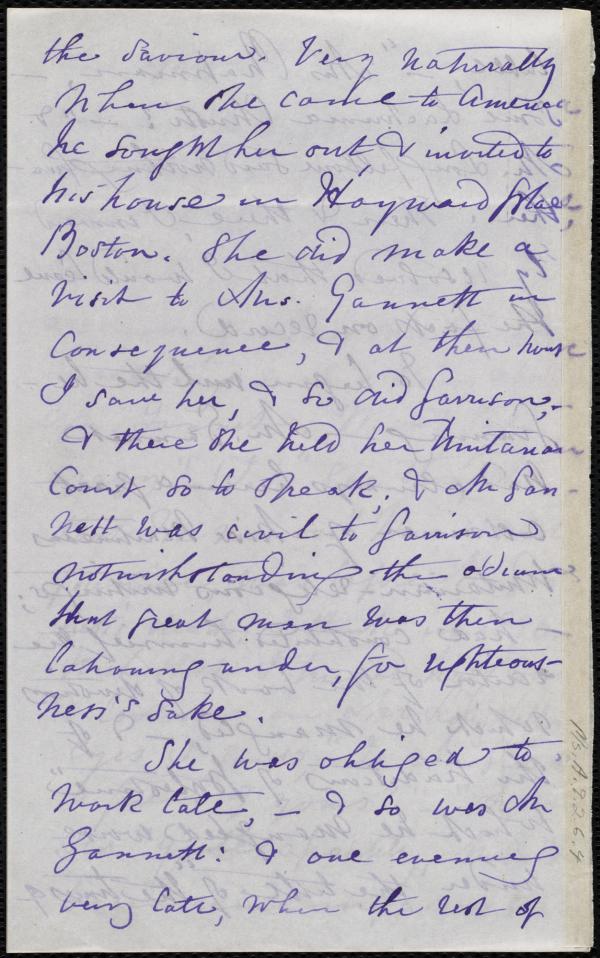 the Saviour. Very naturally
when she came to America
he sought her out & invited to
his house in Hayward Place
Boston. She did make a
visit to Mrs. Gannett in
consequence, & at their house
I saw her, & so did Garrison,-
& there she held her Unitarian
Court so to speak; & Mr Gan-
nett was civil to Garrison
notwithstanding the odium
that great man was then
labouring under, for righteous-
ness's sake.
She was obliged to
work late, - & so was Mr
Gannett: & one evening
very late, when the rest of
Ms.A.9.2.6.4